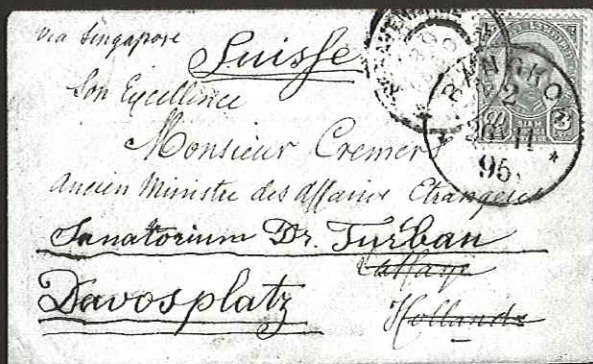 via Singapore
Suisse
Son Excellence
Monsieur Cremer
Ancien Ministre des Affaires Etrangères
Sanatorium Dr. Turban
Davosplatz
Hollande
BANGKO
2
11
95